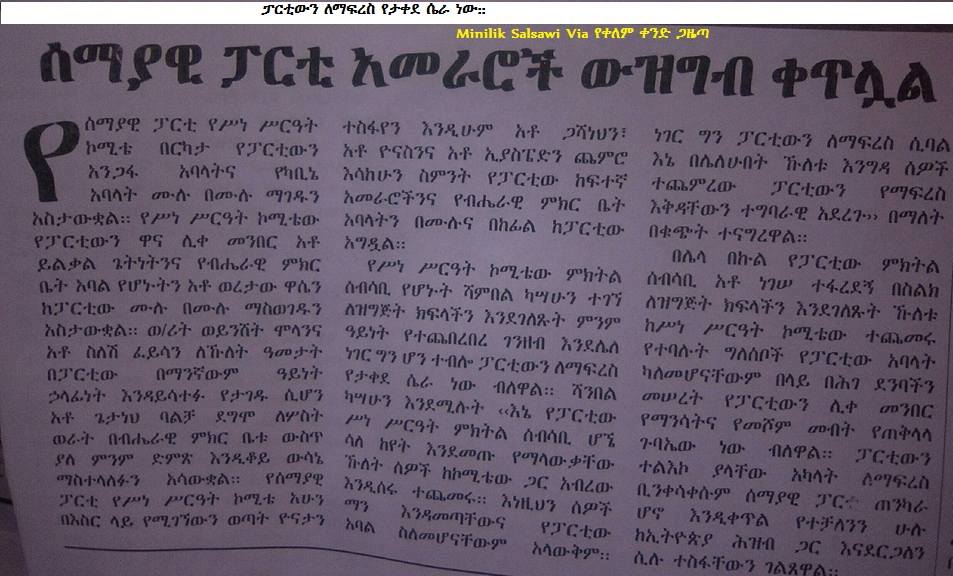 ፓርቲውን ለማፍረስ የታቀደ ሴራ ነው፡፡
Minilik Salsawi Via የቀለም ቀንድ ጋዜጣ
ሰማያዊ ፓርቲ አመራሮች ውዝግብ ቀጥሏል
የሰማያዊ ፓርቲ የሥነ ሥርዓት
ኮሚቴ በርካታ የፓርቲውን
አንጋፋ አባላትና የካቢኔ
አባላት ሙሉ በሙሉ ማገዱን
አስታውቋል፡፡ የሥነ ሥርዓት ኮሚቴው
የፓርቲውን ዋና ሊቀ መንበር አቶ
ይልቃል ጌትነትንና የብሔራዊ ምክር
ቤት አባል የሆኑትን አቶ ወረታው ዋሴን
ከፓርቲው ሙሉ በሙሉ ማስወገዱን
አስታውቋል፡፡ ወ/ሪት ወይንሸት ሞላንና
አቶ ስለሽ ፈይሳን ለኹለት ዓመታት
በፓርቲው በማንኛውም ዓይነት
ኃላፊነት እንዳይሳተፉ የታገዱ ሲሆን
አቶ ጌታነህ ባልቻ ደግሞ ለሦስት
ወራት በብሔራዊ ምክር ቤቱ ውስጥ
ያለ ምንም ድምጽ እንዲቆይ ውሳኔ
ማስተላለፉን አሳውቋል፡፡ የሰማያዊ
ፓርቲ የሥነ ሥርዓት ኮሚቴ አሁን
በእስር ላይ የሚገኘውን ወጣት ዮናታን
ተስፋየን እንዲሁም አቶ ጋሻነህን፣
አቶ ዮናስንና አቶ ኢያስፔድን ጨምሮ
እሳከሁን ስምንት የፓርቲው ከፍተኛ
አመራሮችንና የብሔራዊ ምክር ቤት
አባላትን በሙሉና በከፊል ከፓርቲው
አግዷል፡፡
የሥነ ሥርዓት ኮሚቴው ምክትል
ሰብሳቢ የሆኑት ሻምበል ካሣሁን ተገኘ
ለዝግጅት ክፍላችን እንደገለጹት ምንም
ዓይነት የተጨበረበረ ገንዘብ እንደሌለ
ነገር ግን ሆን ተብሎ ፓርቲውን ለማፍረስ
የታቀደ ሴራ ነው ብለዋል፡፡ ሻንበል
ካሣሁን እንደሚሉት ‹‹እኔ የፓርቲው
ሥነ ሥርዓት ምክትል ሰብሳቢ ሆኜ
ሳለ ከየት እንደመጡ የማላውቃቸው
ኹለት ሰዎች ከኮሚቴው ጋር አብረው
እንዲሰሩ ተጨመሩ፡፡ እነዚህን ሰዎች
ማን እንዳመጣቸውና የፓርቲው
አባል ስለመሆናቸውም አላውቅም፡፡
ነገር ግን ፓርቲውን ለማፍረስ ሲባል
እኔ በሌለሁበት ኹለቱ እንግዳ ሰዎች
ተጨምረው ፓርቲውን የማፍረስ
እቅዳቸውን ተግባራዊ አደረጉ›› በማለት
በቁጭት ተናግረዋል፡፡
በሌላ በኩል የፓርቲው ምክትል
ሰብሳቢ አቶ ነገሠ ተፋረደኝ በስልክ
ለዝግጅት ክፍላችን እንደገለጹት ኹለቱ
ከሥነ ሥርዓት ኮሚቴው ተጨመሩ
የተባሉት ግለሰቦች የፓርቲው አባላት
ካለመሆናቸውም በላይ በሕገ ደንባችን
መሠረት የፓርቲውን ሊቀ መንበር
የማንሳትና የመሾም መብት የጠቅላላ
ጉባኤው ነው ብለዋል፡፡ ፓርቲውን
ተልእኮ ያላቸው አካላት ለማፍረስ
ቢንቀሳቀሱም ሰማያዊ ጠንካራ
ሆኖ እንዲቀጥል የተቻለንን ሁሉ
ከኢትዮጵያ ሕዝብ ጋር እናደርጋለን
ሲሉ ተስፋቸውን ገልጸዋል፡፡